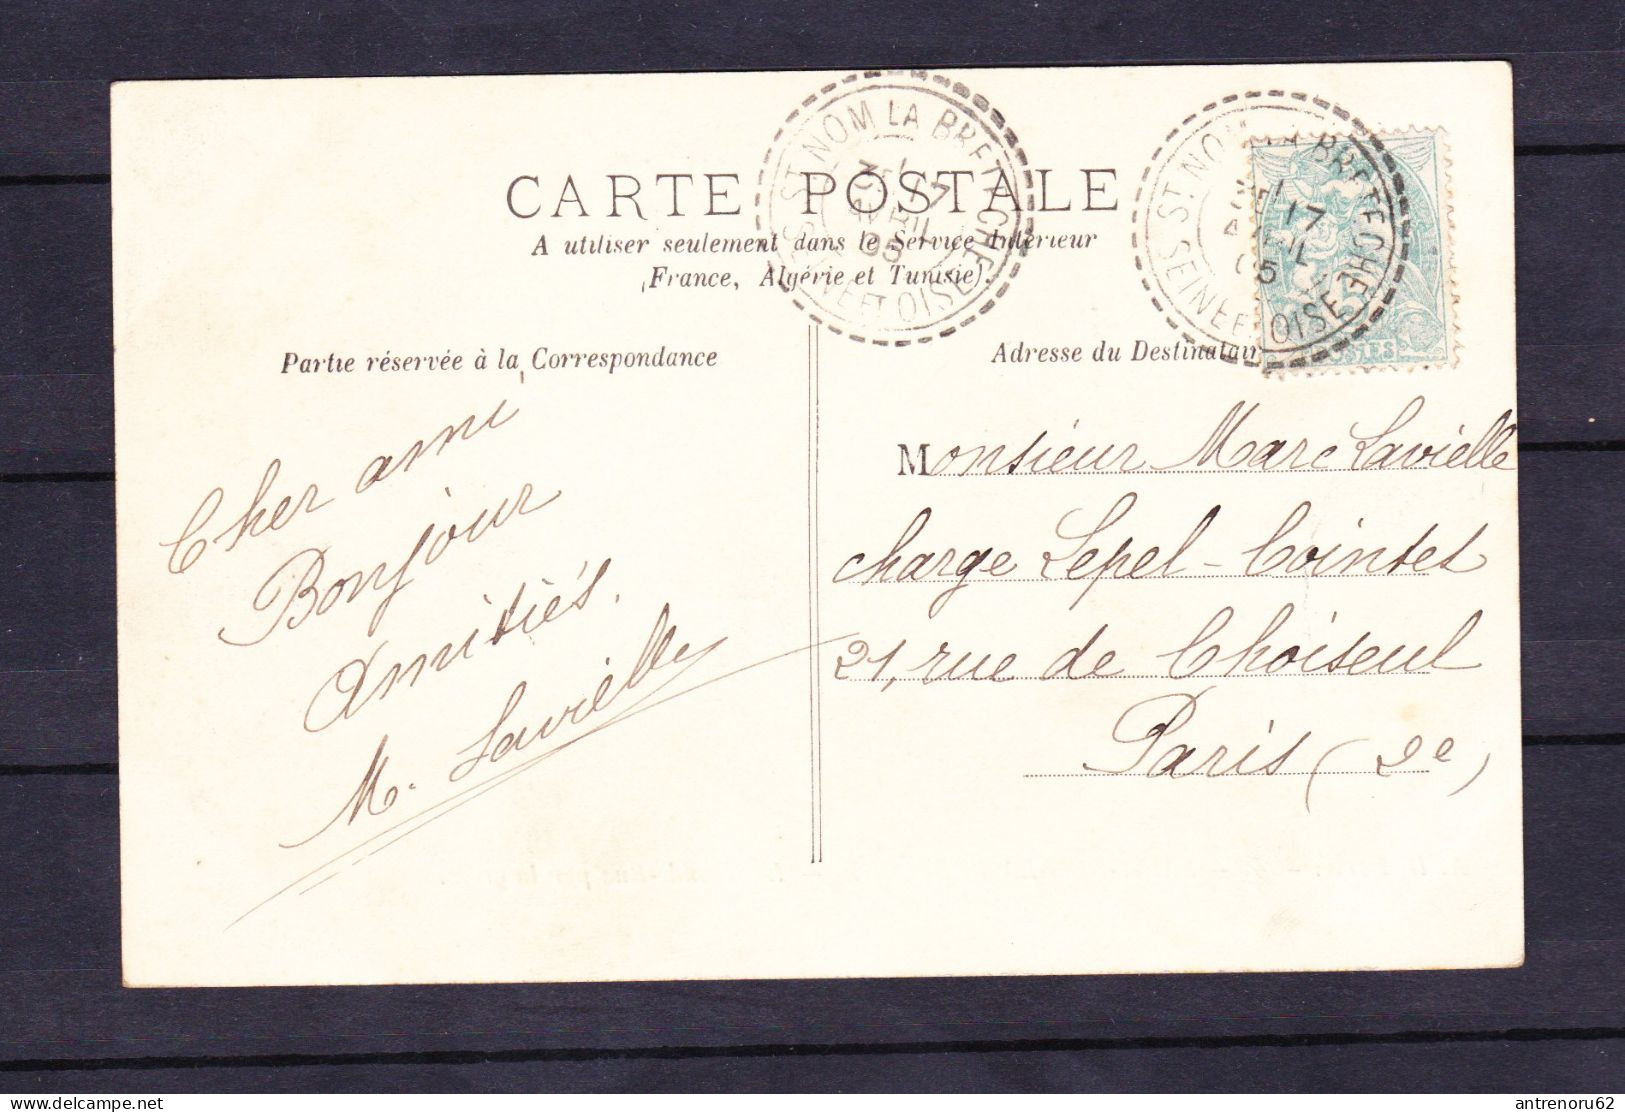 CARTE POSTALE
A utiliser seulement dans le Service Intérieur
France, Algérie et Tunisie).
ST NOM LA BRETECHE
17
AVRIL
05
SEINE ET OISE
ST NOM LA BRETECHE
17
AVRIL
05
SEINE ET OISE
5
POSTES
Partie réservée à la Correspondance
Adresse du Destinatair
Cher ami
Bonjour
Amitiés.
M. Lavielle
Monsieur Marc Lavielle
charge Lepel-Cointet
21, rue de Choiseul
Paris (2e)
delcampe.net
antrenoru62